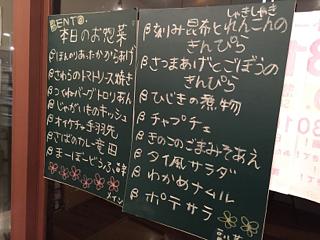 BENTO
本日のお惣菜
ほんのりあったかからあげ
さわらのトマトソース焼き
つくねバーグトロリあん
じゃがいものホッシュ
オイケチャ手羽先
さばのカレー竜田
まーぼーどうふ
メイン
しゃきしゃき
刻み昆布とれんこんの
きんぴら
さつまあげとごぼうの
きんぴら
ひじきの煮物
チャプチェ
きのこのごまみそあえ
タイ風サラダ
わかめナムル
ポテサラ